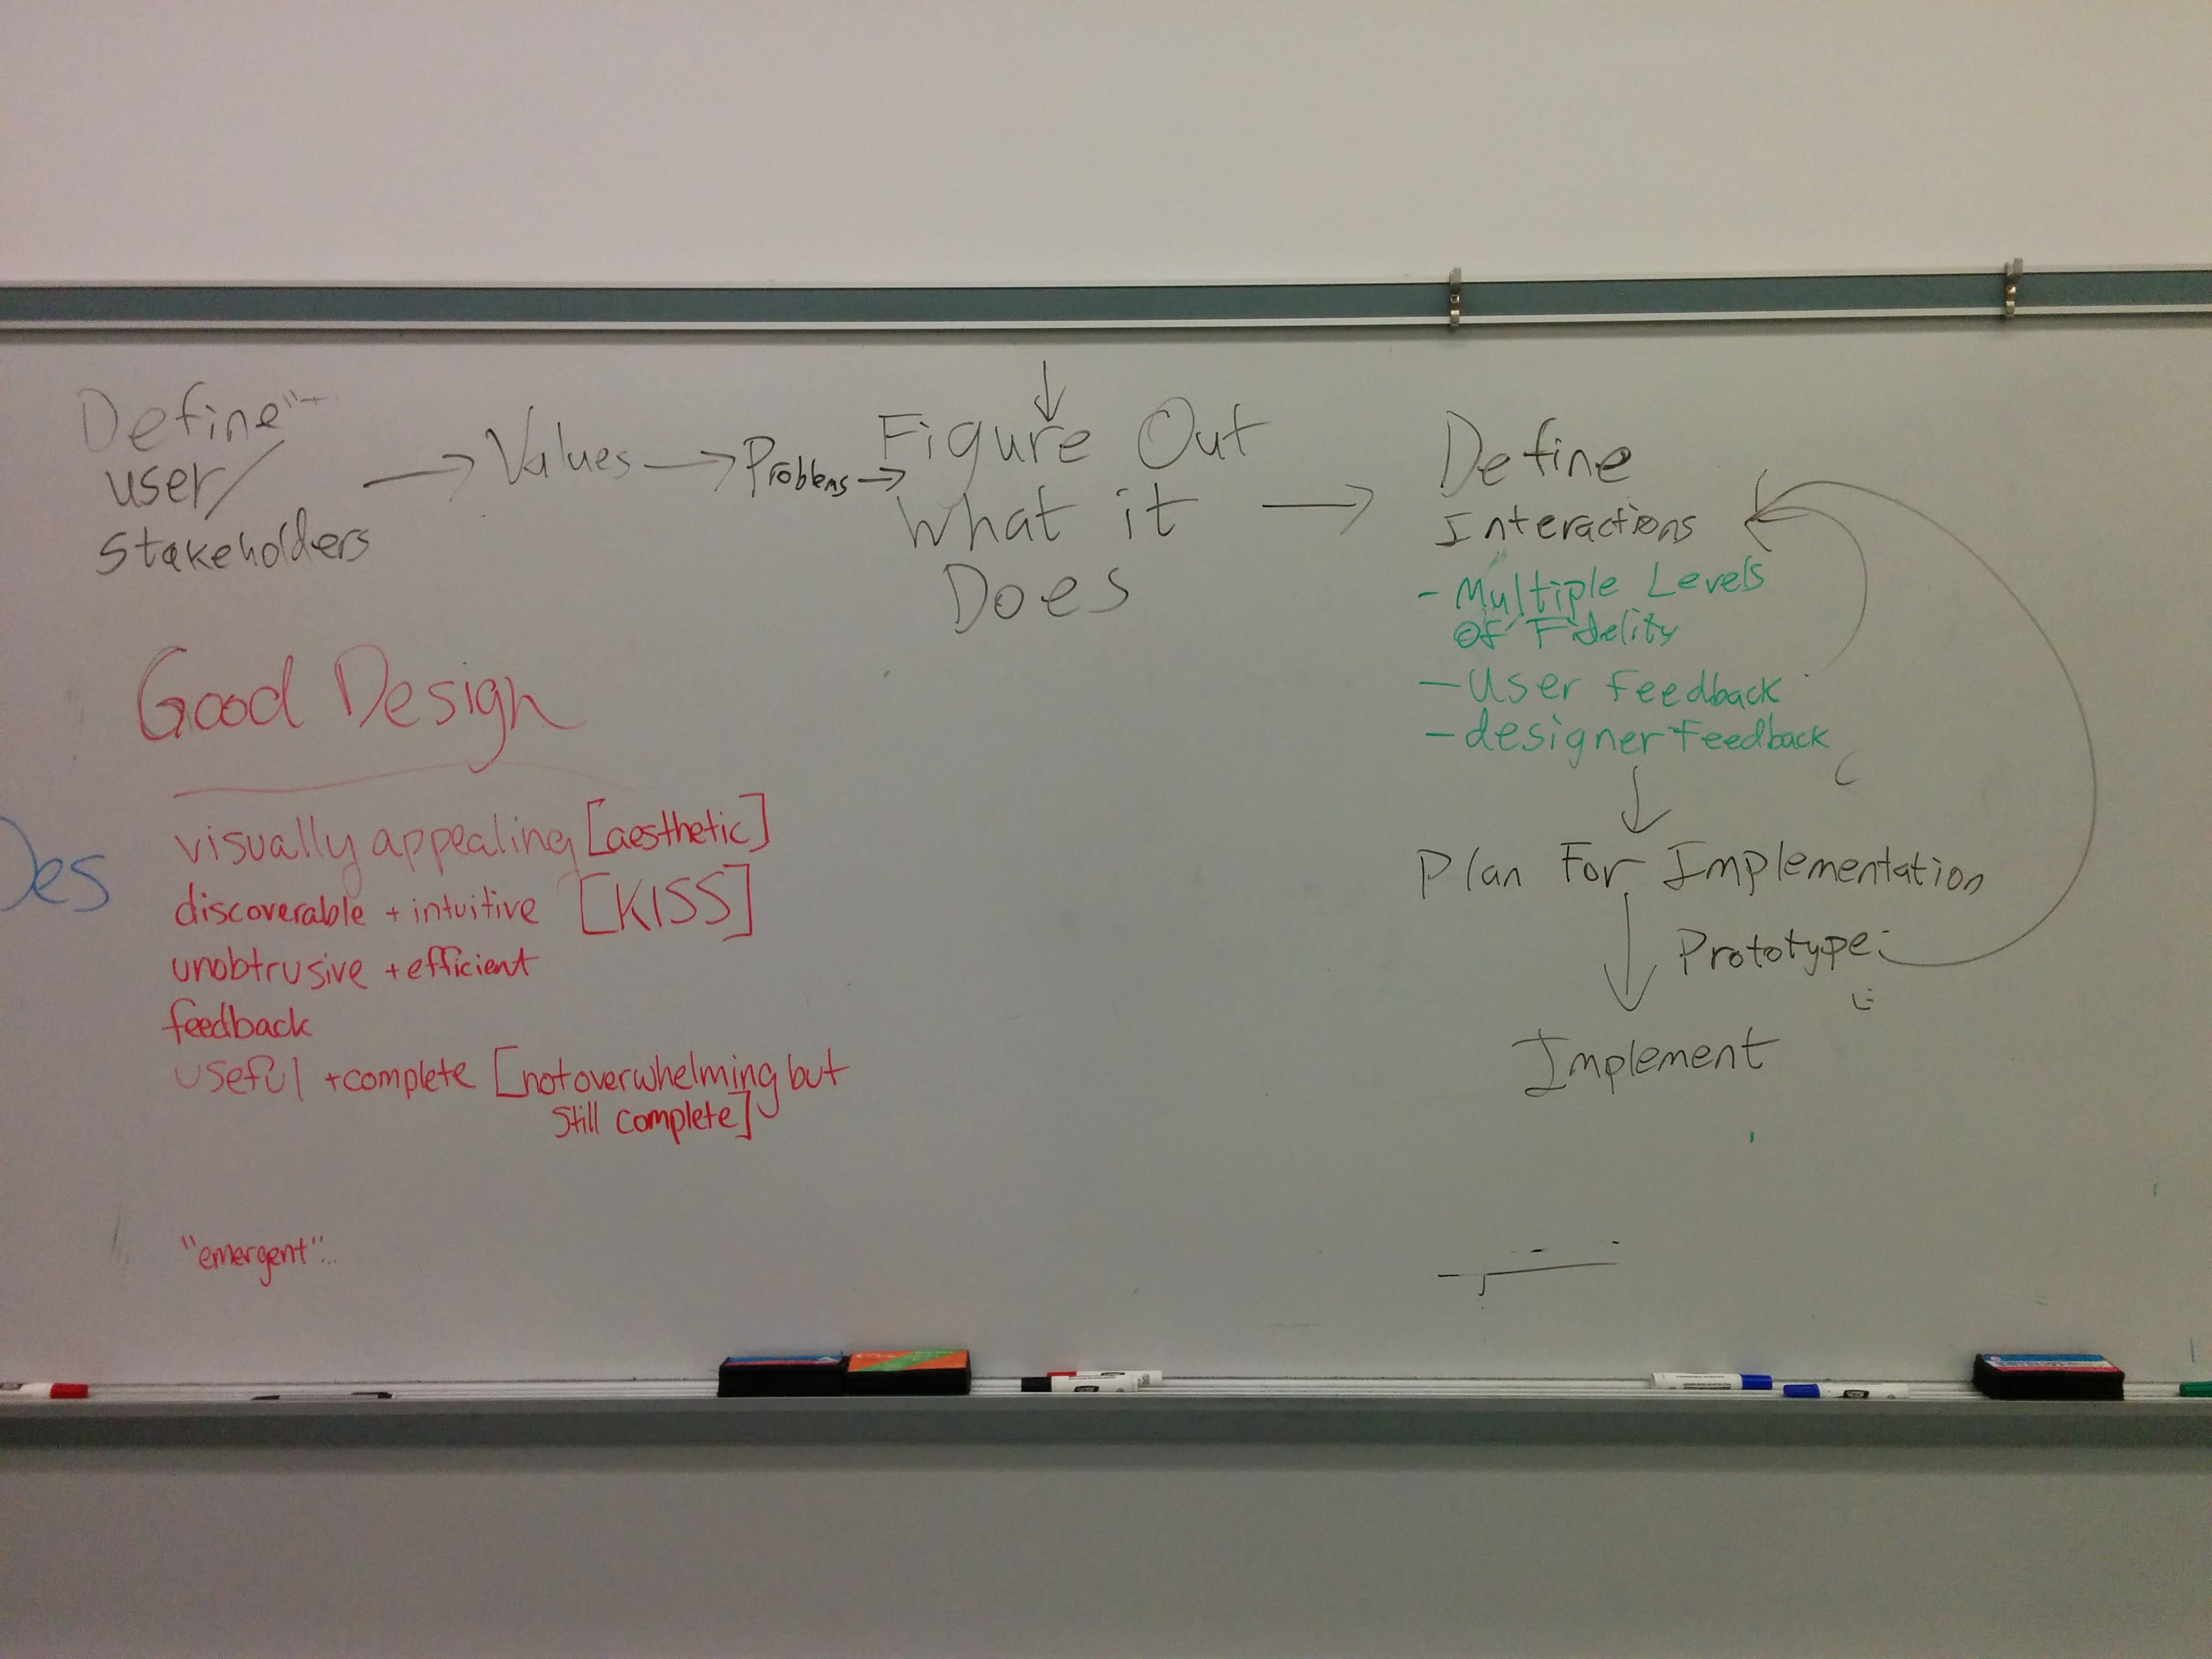 Define
user/
Stakeholders
→ Values → Problems →
Figure Out
What it
Does
→
Define
Interactions
- Multiple Levels
of Fidelity
- User Feedback
- designer Feedback
Plan For Implementation
Prototype
Implement
Good Design
visually appealing [aesthetic]
discoverable + intuitive [KISS]
unobtrusive + efficient
feedback
useful + complete [not overwhelming but
still complete]
"emergent"...
Des